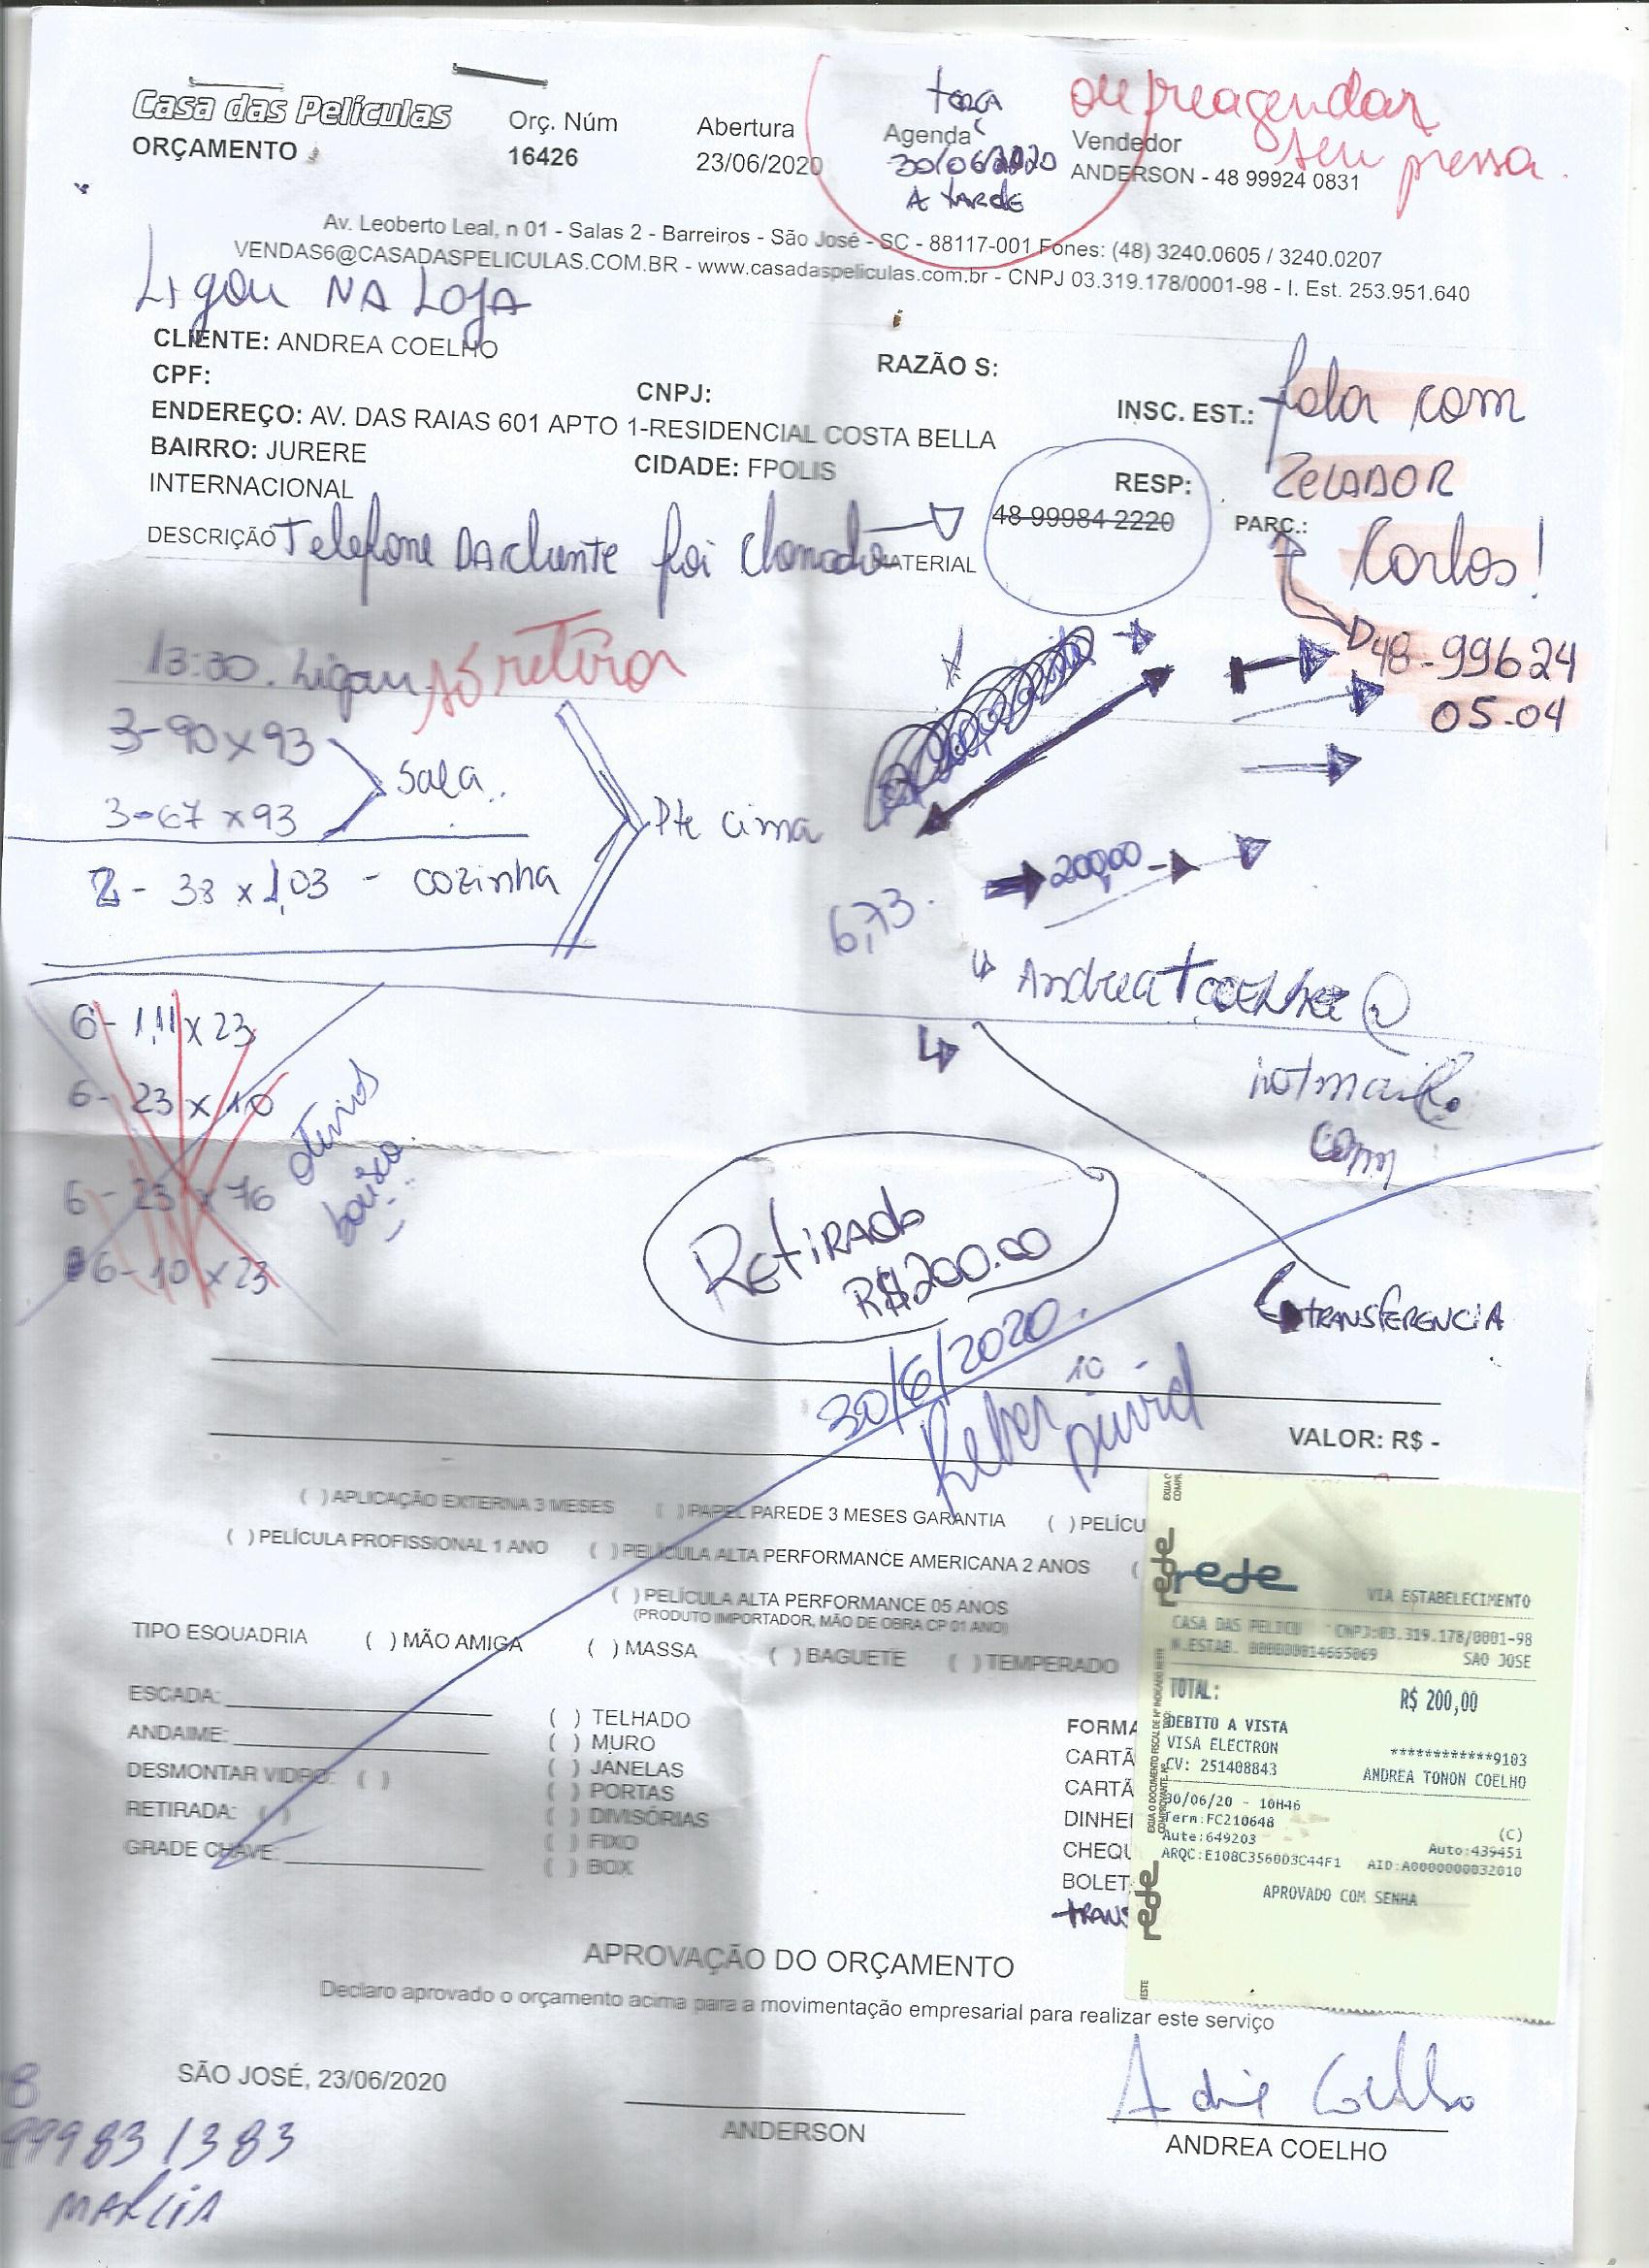 terça
ou reagendar
sem pressa.
Casa das Películas
ORÇAMENTO
Orç. Núm
16426
Abertura
23/06/2020
Agenda
30/06/2020
A TARDE
Vendedor
ANDERSON - 48 99924 0831
Av. Leoberto Leal, n 01 - Salas 2 - Barreiros - São José - SC - 88117-001 Fones: (48) 3240.0605 / 3240.0207
VENDAS6@CASADASPELICULAS.COM.BR - www.casadaspeliculas.com.br - CNPJ 03.319.178/0001-98 - I. Est. 253.951.640
Ligou NA LOJA
CLIENTE: ANDREA COELHO
RAZÃO S:
CPF:
CNPJ:
INSC. EST.:
ENDEREÇO: AV. DAS RAIAS 601 APTO 1-RESIDENCIAL COSTA BELLA
BAIRRO: JURERE
INTERNACIONAL
CIDADE: FPOLIS
RESP:
48 99984 2220
PARC.:
fala com
ZELADOR
Carlos!
48-99624
05-04
DESCRIÇÃO
Telefone DA cliente foi
MATERIAL
13:30. Ligar
só retirar
3-90x93
3-67x93
Sala..
2- 33x1,03 - cozinha
Pte cima
200,00
6,73.
Andreatcoelho@
hotmail.
com
6- 1,11x23
6- 23x10
6- 23x76
6- 10x23
baixo
RETIRADO
R$200.00
TRANSFERENCIA
30/6/2020.
10
VALOR: R$ -
( ) APLICAÇÃO EXTERNA 3 MESES ( ) PAPEL PAREDE 3 MESES GARANTIA ( ) PELÍCU
( ) PELÍCULA PROFISSIONAL 1 ANO ( ) PELÍCULA ALTA PERFORMANCE AMERICANA 2 ANOS (
( ) PELÍCULA ALTA PERFORMANCE 05 ANOS
(PRODUTO IMPORTADOR, MÃO DE OBRA CP 01 ANO)
TIPO ESQUADRIA ( ) MÃO AMIGA ( ) MASSA ( ) BAGUETE ( ) TEMPERADO
ESCADA:
ANDAIME:
DESMONTAR VIDRO: ( )
RETIRADA: ( )
GRADE CHAVE:
( ) TELHADO
( ) MURO
( ) JANELAS
( ) PORTAS
( ) DIVISÓRIAS
( ) FIXO
( ) BOX
FORMA
CARTÃ
CARTÃ
DINHEI
CHEQU
BOLET
TRANS
rede
rede
rede
VIA ESTABELECIMENTO
CASA DAS PELICU CNPJ:03.319.178/0001-98
N.ESTAB. 000000014665069 SAO JOSE
TOTAL: R$ 200,00
DEBITO A VISTA
VISA ELECTRON ************9103
CV: 251408843 ANDREA TONON COELHO
30/06/20 - 10H46
Term:FC210648 (C)
Aute:649203 Auto:439451
ARQC:E108C356003C44F1 AID:A0000000032010
APROVADO COM SENHA
APROVAÇÃO DO ORÇAMENTO
Declaro aprovado o orçamento acima para a movimentação empresarial para realizar este serviço
SÃO JOSÉ, 23/06/2020
ANDERSON
ANDREA COELHO
8
99983 1383
MARCIA